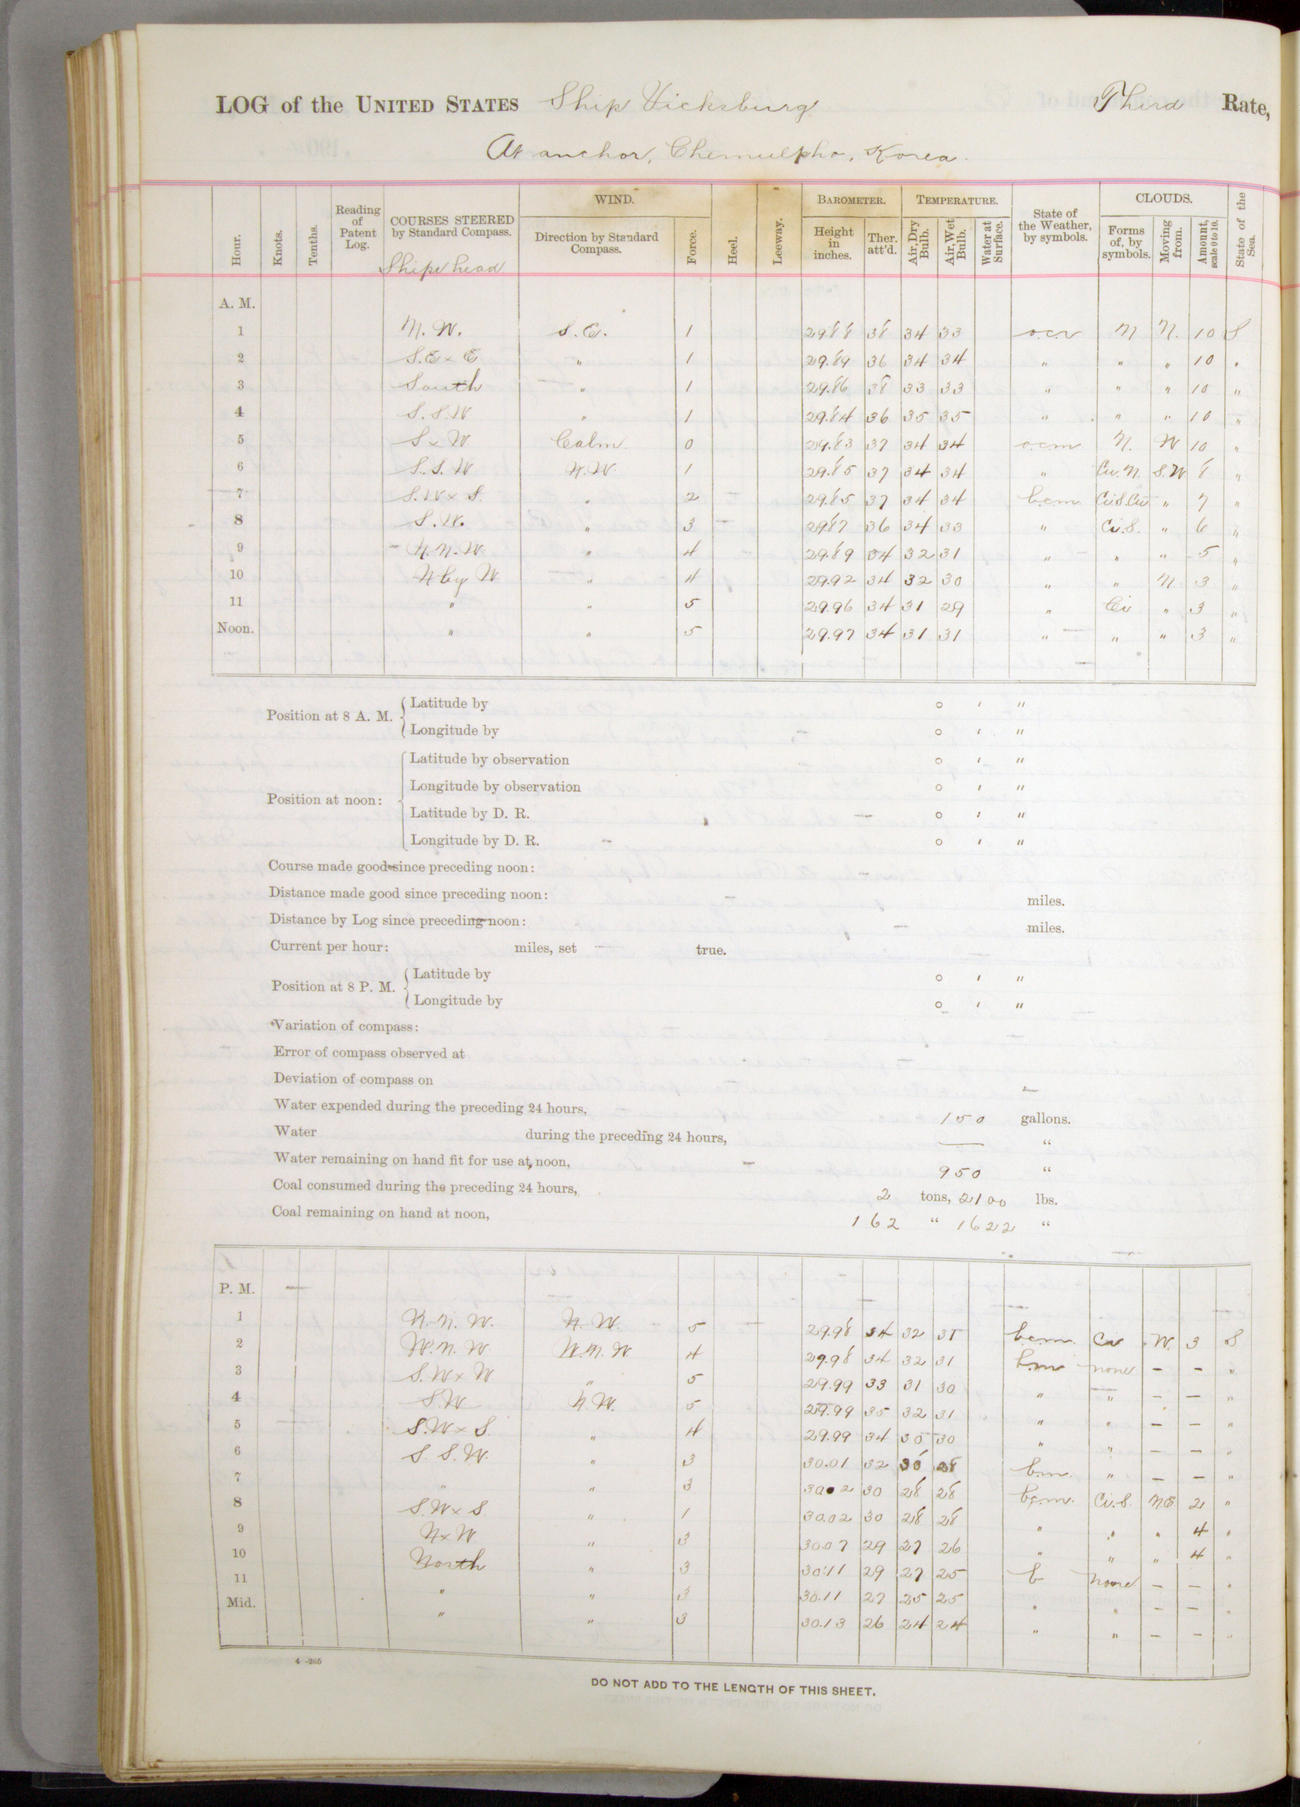 LOG of the UNITED STATES Ship Vicksburg Third Rate,
At anchor, Chemulpho, Korea.
Hour. Knots. Tenths. Reading of Patent Log. COURSES STEERED by Standard Compass. WIND. Direction by Standard Compass. Force. Heel. Leeway. BAROMETER. Height in inches. Ther. att'd. TEMPERATURE. Air, Dry Bulb. Air, Wet Bulb. Water at Surface. State of the Weather, by symbols. CLOUDS. Forms of, by symbols. Moving from. Amount, scale 0 to 10. State of the Sea.
Ships head
A. M.
1 N. W. S. E. 1 29.88 38 34 33 o.c.r N N. 10 S
2 S.E x E " 1 29.89 36 34 34 " " " 10 "
3 South " 1 29.86 38 33 33 " " " 10 "
4 S. S. W " 1 29.84 36 35 35 " " " 10 "
5 S x W Calm 0 29.83 37 34 34 o.c.m N. W 10 "
6 S. S. W N.W 1 29.85 37 34 34 " Cu. N. S.W 8 "
7 S.W x S. " 2 29.85 37 34 34 b.c.m " 7 "
8 S. W. " 3 29.87 36 34 33 " Ci.S. " 6 "
9 N. N. W. " 4 29.89 34 32 31 " " " 5 "
10 N by W " 4 29.92 34 32 30 " " N. 3 "
11 " " 5 29.96 34 31 29 " Ci " 3 "
Noon. " " 5 29.97 34 31 31 " " " 3 "
Position at 8 A. M. Latitude by ° ' "
Longitude by ° ' "
Position at noon: Latitude by observation ° ' "
Longitude by observation ° ' "
Latitude by D. R. ° ' "
Longitude by D. R. ° ' "
Course made good since preceding noon:
Distance made good since preceding noon: miles.
Distance by Log since preceding noon: miles.
Current per hour: miles, set true.
Position at 8 P. M. Latitude by ° ' "
Longitude by ° ' "
Variation of compass:
Error of compass observed at
Deviation of compass on
Water expended during the preceding 24 hours, 150 gallons.
Water during the preceding 24 hours, — "
Water remaining on hand fit for use at noon, 950 "
Coal consumed during the preceding 24 hours, 2 tons, 2100 lbs.
Coal remaining on hand at noon, 162 " 1622 "
P. M.
1 N. N. W. N. W. 5 29.98 34 32 31 b.c.m. Ci W. 3 S
2 W. N. W W. N. W 4 29.98 34 32 31 b.m none — — "
3 S. W x W " 5 29.99 33 31 30 " " — — "
4 S.W N.W. 5 29.99 35 32 31 " " — — "
5 S.W x S. " 4 29.99 34 30 30 " " — — "
6 S. S. W. " 3 30.01 32 30 28 b.m. " — — "
7 " " 3 30.02 30 28 28 b.c.m. Ci.S. NE 2 "
8 S.W x S. " 1 30.02 30 28 28 " " " 4 "
9 N x W " 3 30.07 29 27 26 " " " 4 "
10 North " 3 30.11 29 27 25 b none — — "
11 " " 3 30.11 27 25 25 " " — — "
Mid. " " 3 30.13 26 24 24 " " — — "
4-265
DO NOT ADD TO THE LENGTH OF THIS SHEET.